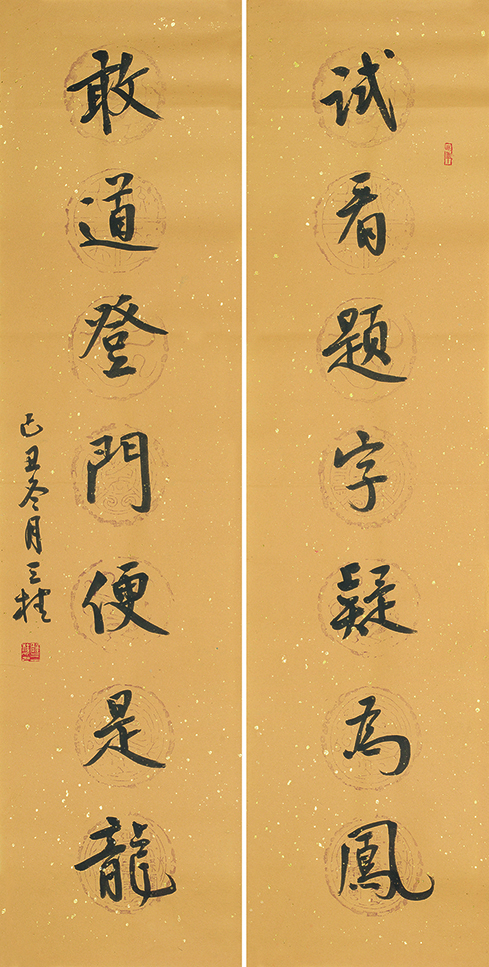 試看題字疑為鳳
敢道登門便是龍
己丑冬月三桂